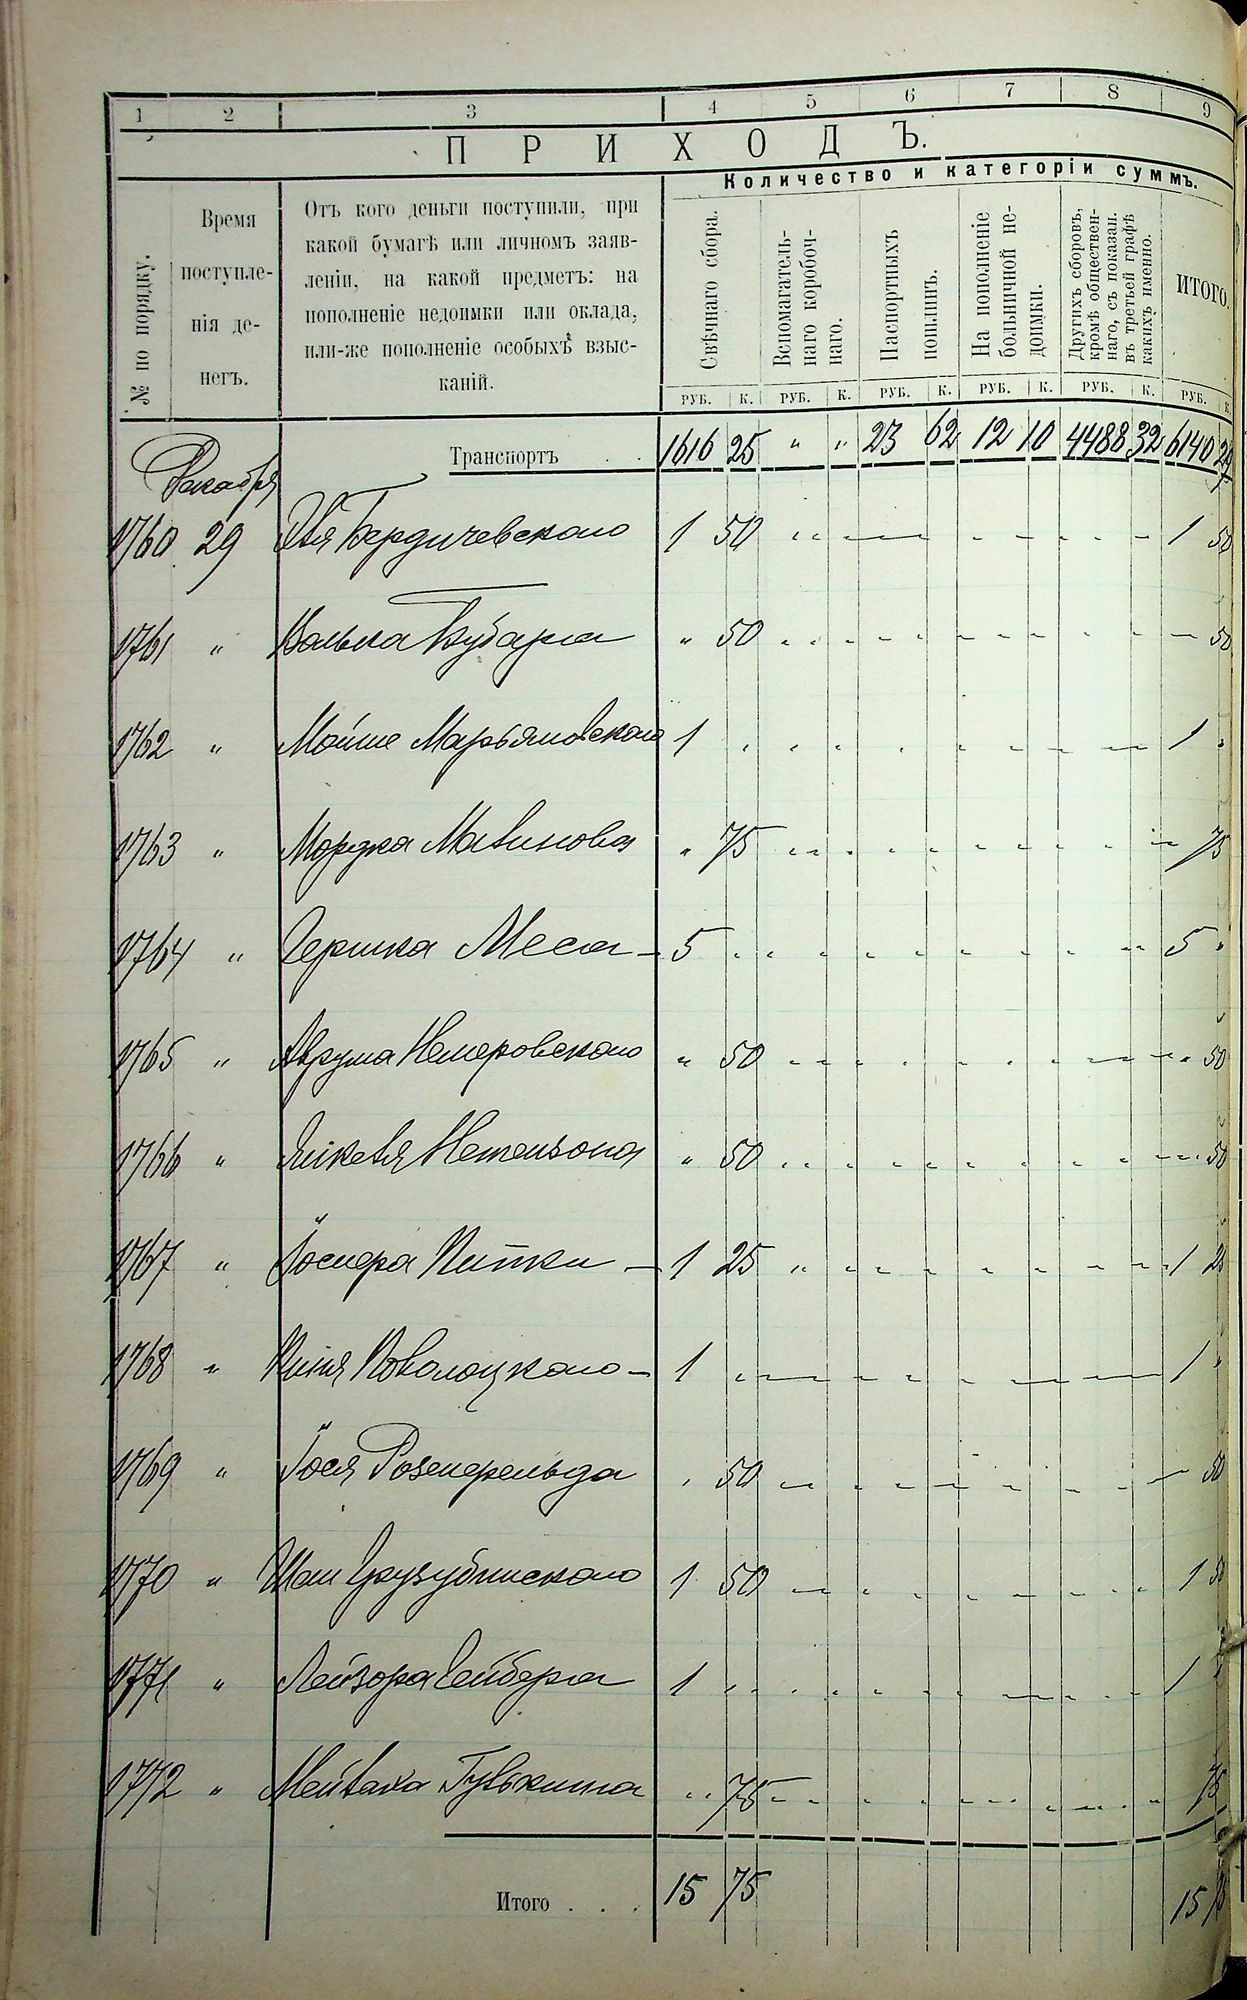 1 2 3 4 5 6 7 8 9
ПРИХОДЪ.
Количество и категоріи суммъ.
№ по порядку.
Время
поступле-
нія де-
негъ.
Отъ кого деньги поступили, при
какой бумагѣ или личномъ заяв-
леніи, на какой предметъ: на
пополненіе недоимки или оклада,
или-же пополненіе особыхъ взыс-
каній.
Свѣчнаго сбора.
Вспомагатель-
наго коробоч-
наго.
Паспортныхъ
пошлинъ.
На пополненіе
больничной не-
доимки.
Другихъ сборовъ,
кромѣ обществен-
наго, съ показан.
въ третьей графѣ
какихъ именно.
ИТОГО.
РУБ. К. РУБ. К. РУБ. К. РУБ. К. РУБ. К. РУБ. К.
Транспортъ . . 1616 25 " " 23 62 12 10 4488 32 6140 29
Декабря
1760 29 Бердичевскаго 1 50 1 50
1761 " Волька Бубара " 50 50
1762 " Мойше Марьямовскаго 1 1
1763 " Мордка " 75 75
1764 " Гершка Меса 5 5
1765 " Аврума Немеровскаго " 50 " 50
1766 " Натензона " 50 50
1767 " Питки 1 25 1 25
1768 " Пиня Поволоцкаго 1 1
1769 " Іося Розенфельда 50 50
1770 " 1 50 1 50
1771 " Лейзора Гейберга 1 1
1772 " " 75 75
Итого . . . 15 75 15 75